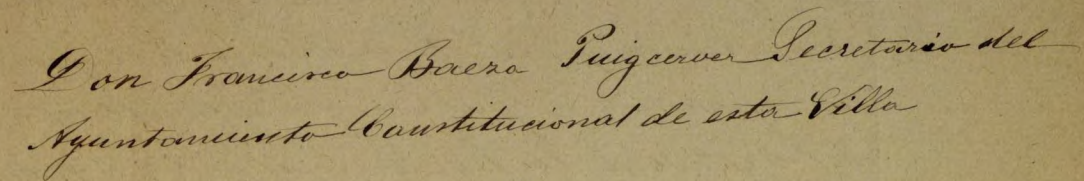 Don Francisco Baeza Puigcerver Secretario del
Ayuntamiento Constitucional de esta Villa